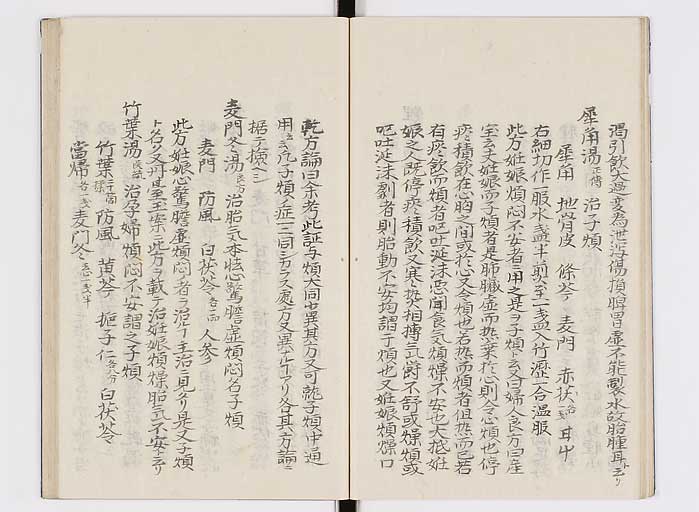 渇引飲太過変為泄瀉傷損脾胃虚不能製水故胎腫耳ト云リ
犀角湯 正傳 治子煩
犀角 地骨皮 條芩 麦門 赤茯 各 甘艸
右細切作一服水盞半煎至一盞入竹瀝一合温服
此方妊娠煩悶不安者ニ用之是ヲ子煩ト云又曰婦人良方曰産
宝云夫妊娠而子煩者是肺臓虚而热業於心則令心煩也停
痰積飲在心胸之間或於心又令煩也若热而煩者但热而已若
有痰飲而煩者呕吐涎沫悪聞食気煩燥不安也大抵妊
娠之人既停痰積飲又寒热相搏気欝不舒或燥煩或
呕吐涎沫剧者則胎動不安均謂子煩也又妊娠煩燥口
乾方論曰余考此証与煩大同少異其方又可就子煩中通
用云々凡子煩ノ症ニ三同シカラス處方又異ナルトアリ各其方論ニ
据テ撿ヘシ
麦門冬湯 良方 治胎気不安心驚膽虚煩悶名子煩
麦門 防風 白茯苓 各二両 人参
此方妊娠心驚膽虚煩悶者ヲ治ルノ主治ニ見タリ是又子煩
ト名ク又丹台玉案ニ此方ヲ載テ治妊娠煩燥胎気不安ト云リ
竹葉湯 治孕婦煩悶不安謂之子煩
竹葉 防風 黄芩 梔子仁 各 白茯苓
當帰 麦門冬